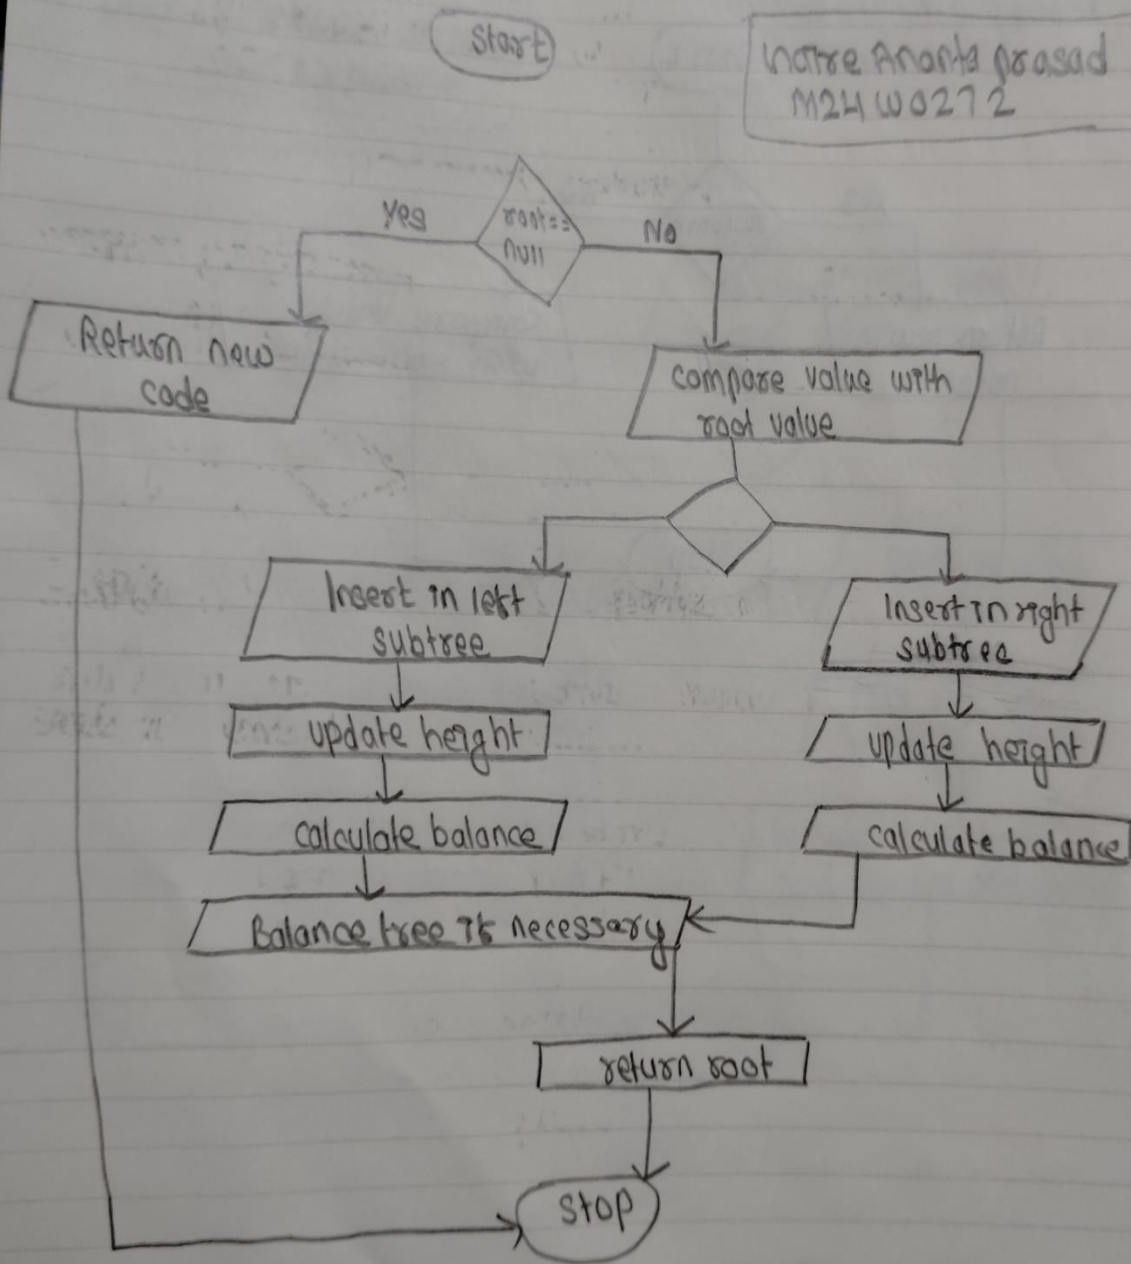 Start
Ananta prasad
M24W0272
Yes
root==
null
No
Return new
code
compare value with
root value
Insert in left
subtree
Insert in right
subtree
update height
update height
calculate balance
calculate balance
Balance tree if necessary
return root
stop